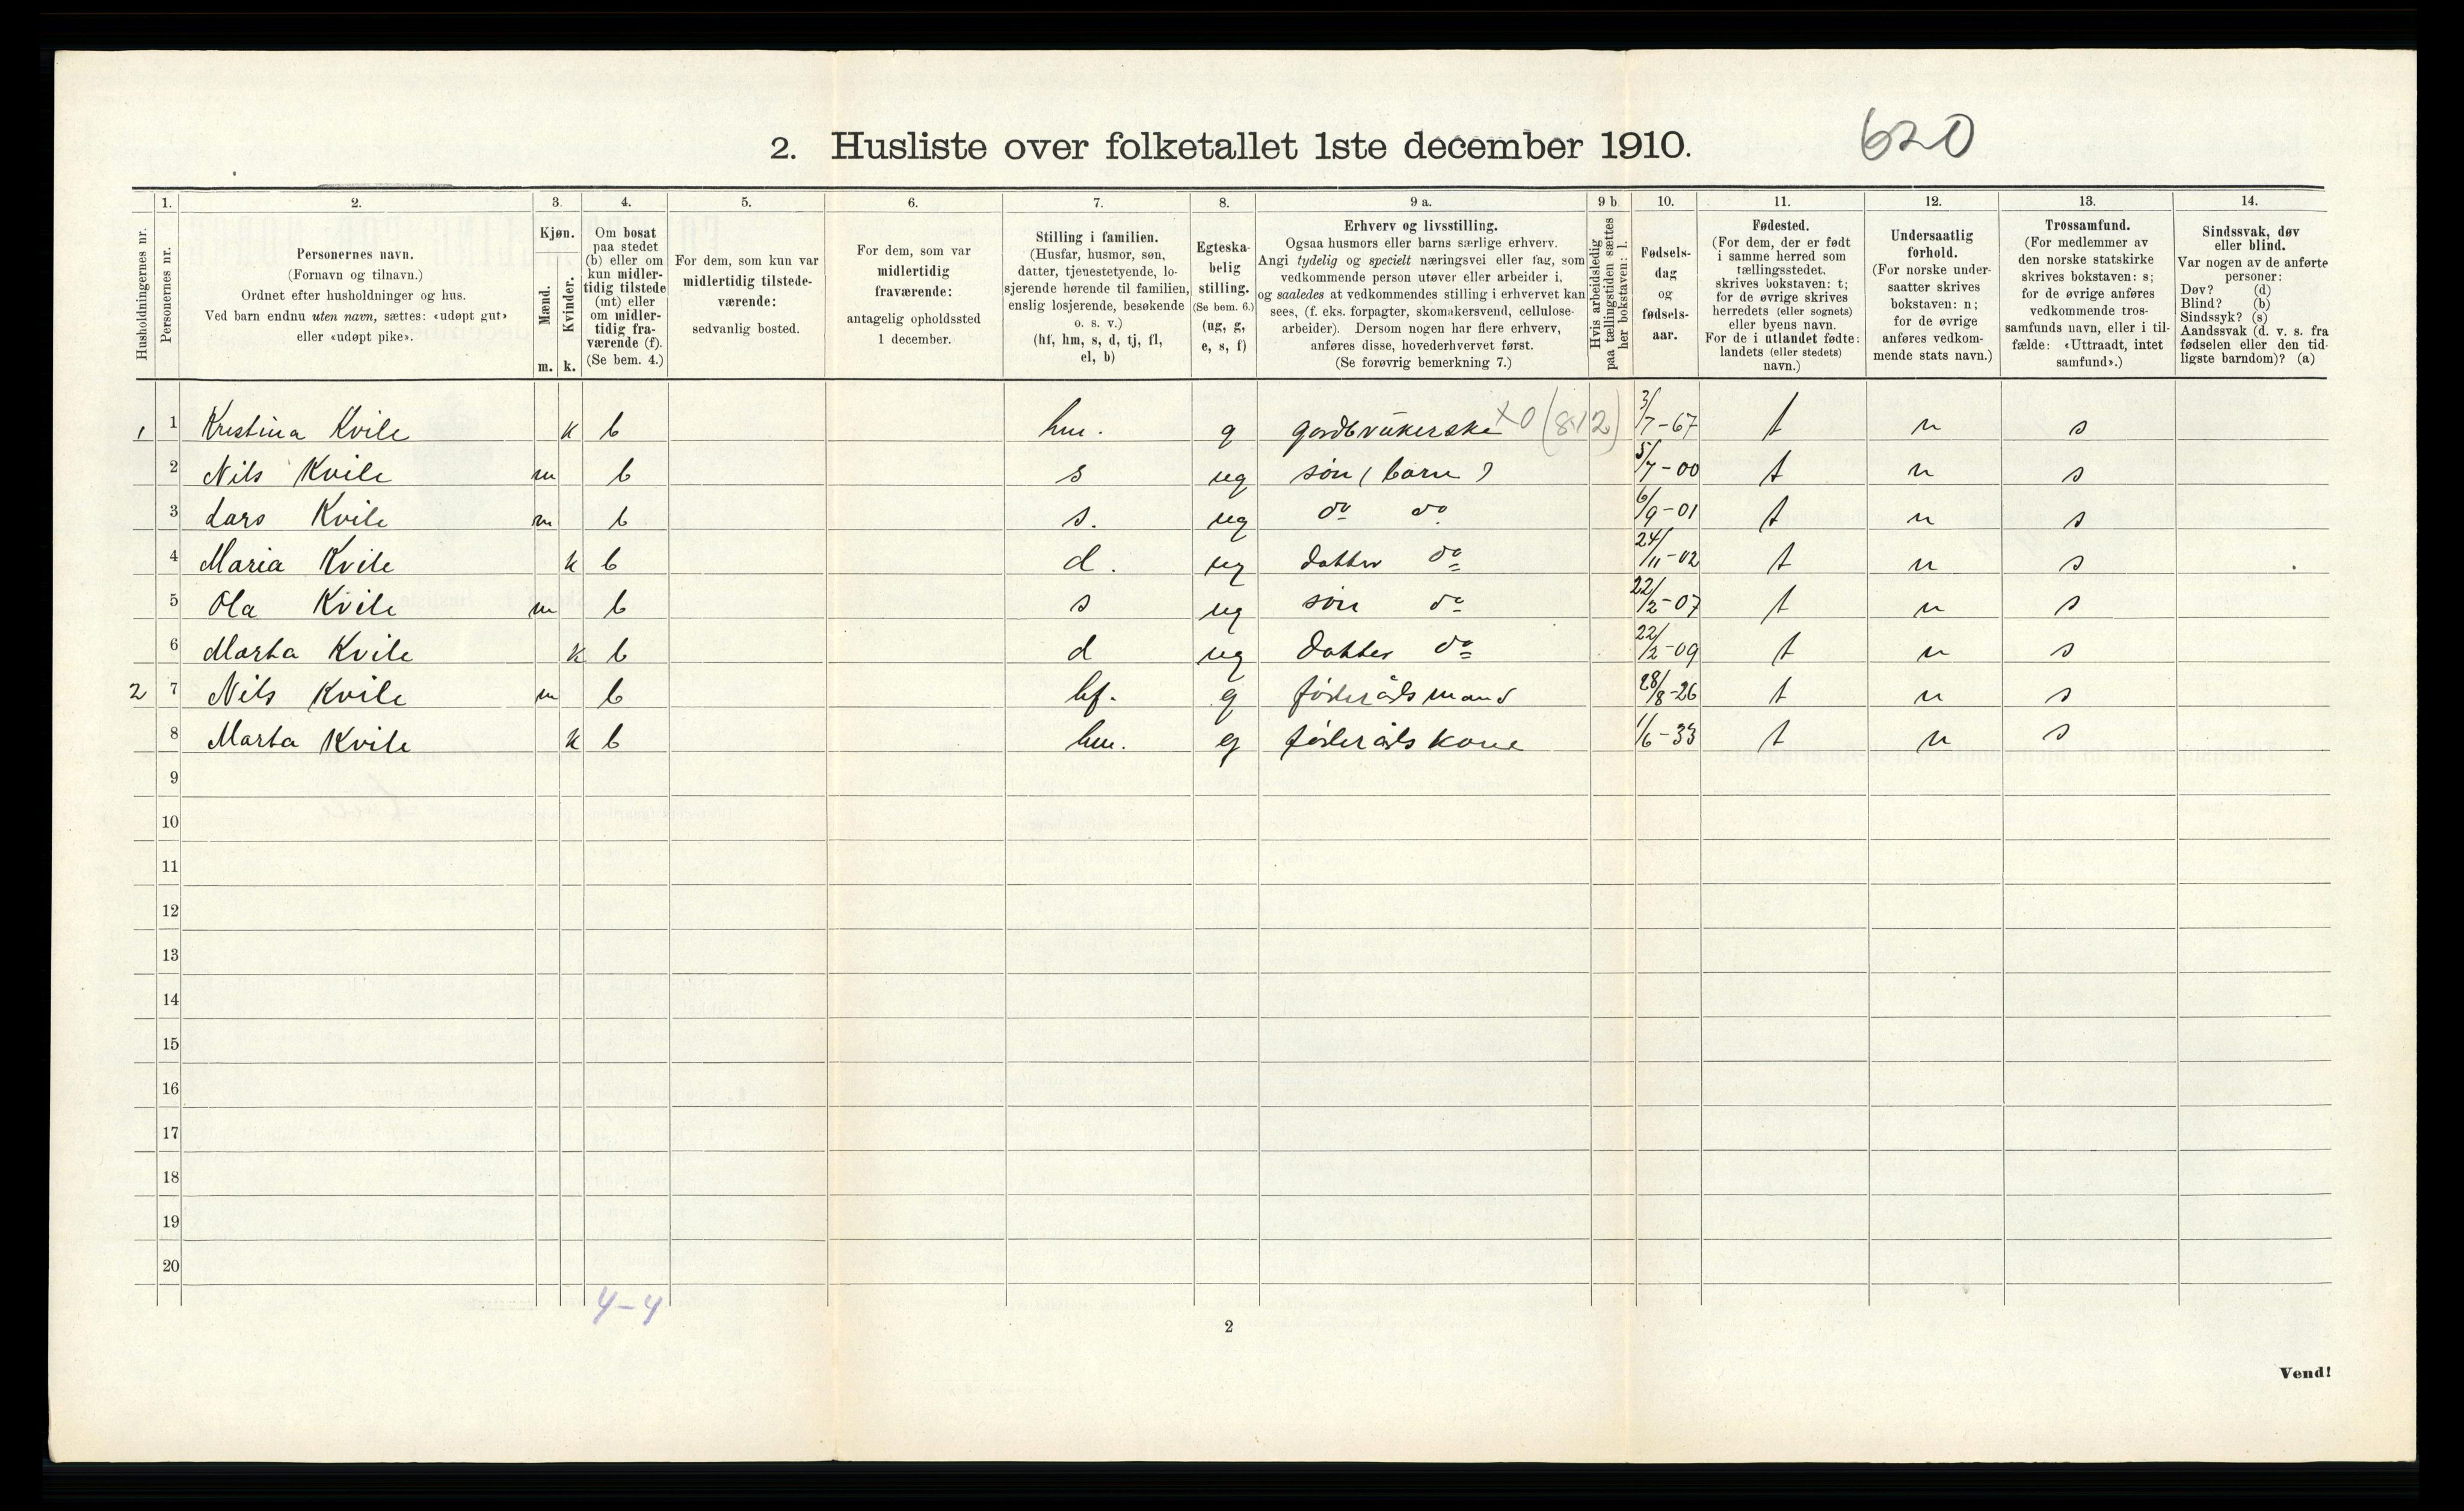 2. Husliste over folketallet 1ste december 1910.
620
1. 2. 3. 4. 5. 6. 7. 8. 9 a. 9 b. 10. 11. 12. 13. 14.
Husholdningernes nr.
Personernes nr.
Personernes navn.
(Fornavn og tilnavn.)
Ordnet efter husholdninger og hus.
Ved barn endnu uten navn, sættes: «udøpt gut»
eller «udøpt pike».
Kjøn.
Mænd.
Kvinder.
m. k.
Om bosat
paa stedet
(b) eller om
kun midler-
tidig tilstede
(mt) eller
om midler-
tidig fra-
værende (f).
(Se bem. 4.)
For dem, som kun var
midlertidig tilstede-
værende:
sedvanlig bosted.
For dem, som var
midlertidig
fraværende:
antagelig opholdssted
1 december.
Stilling i familien.
(Husfar, husmor, søn,
datter, tjenestetyende, lo-
sjerende hørende til familien,
enslig losjerende, besøkende
o. s. v.)
(hf, hm, s, d, tj, fl,
el, b)
Egteska-
belig
stilling.
(Se bem. 6.)
(ug, g,
e, s, f)
Erhverv og livsstilling.
Ogsaa husmors eller barns særlige erhverv.
Angi tydelig og specielt næringsvei eller fag, som
vedkommende person utøver eller arbeider i,
og saaledes at vedkommendes stilling i erhvervet kan
sees, (f. eks. forpagter, skomakersvend, cellulose-
arbeider). Dersom nogen har flere erhverv,
anføres disse, hovederhvervet først.
(Se forøvrig bemerkning 7.)
Hvis arbeidsledig
paa tællingstiden sættes
her bokstaven: l.
Fødsels-
dag
og
fødsels-
aar.
Fødested.
(For dem, der er født
i samme herred som
tællingsstedet,
skrives bokstaven: t;
for de øvrige skrives
herredets (eller sognets)
eller byens navn.
For de i utlandet fødte:
landets (eller stedets)
navn.)
Undersaatlig
forhold.
(For norske under-
saatter skrives
bokstaven: n;
for de øvrige
anføres vedkom-
mende stats navn.)
Trossamfund.
(For medlemmer av
den norske statskirke
skrives bokstaven: s;
for de øvrige anføres
vedkommende tros-
samfunds navn, eller i til-
fælde: «Uttraadt, intet
samfund».)
Sindssvak, døv
eller blind.
Var nogen av de anførte
personer:
Døv? (d)
Blind? (b)
Sindssyk? (s)
Aandssvak (d. v. s. fra
fødselen eller den tid-
ligste barndom)? (a)
1 1 Kristina Kvile k b hm. g gardbrukerske x0 (812) 3/7-67 t n s
2 Nils Kvile m b s ug søn (barn) 5/7-00 t n s
3 Lars Kvile m b s. ug do do 6/9-01 t n s
4 Maria Kvile k b d. ug datter do 24/11-02 t n s
5 Ola Kvile m b s ug søn do 22/2-07 t n s
6 Marta Kvile k b d ug datter do 22/2-09 t n s
2 7 Nils Kvile m b hf. g føderådsmand 28/8-26 t n s
8 Marta Kvile k b hm. g føderådskone 1/6-33 t n s
9
10
11
12
13
14
15
16
17
18
19
20
4-4
2
Vend!